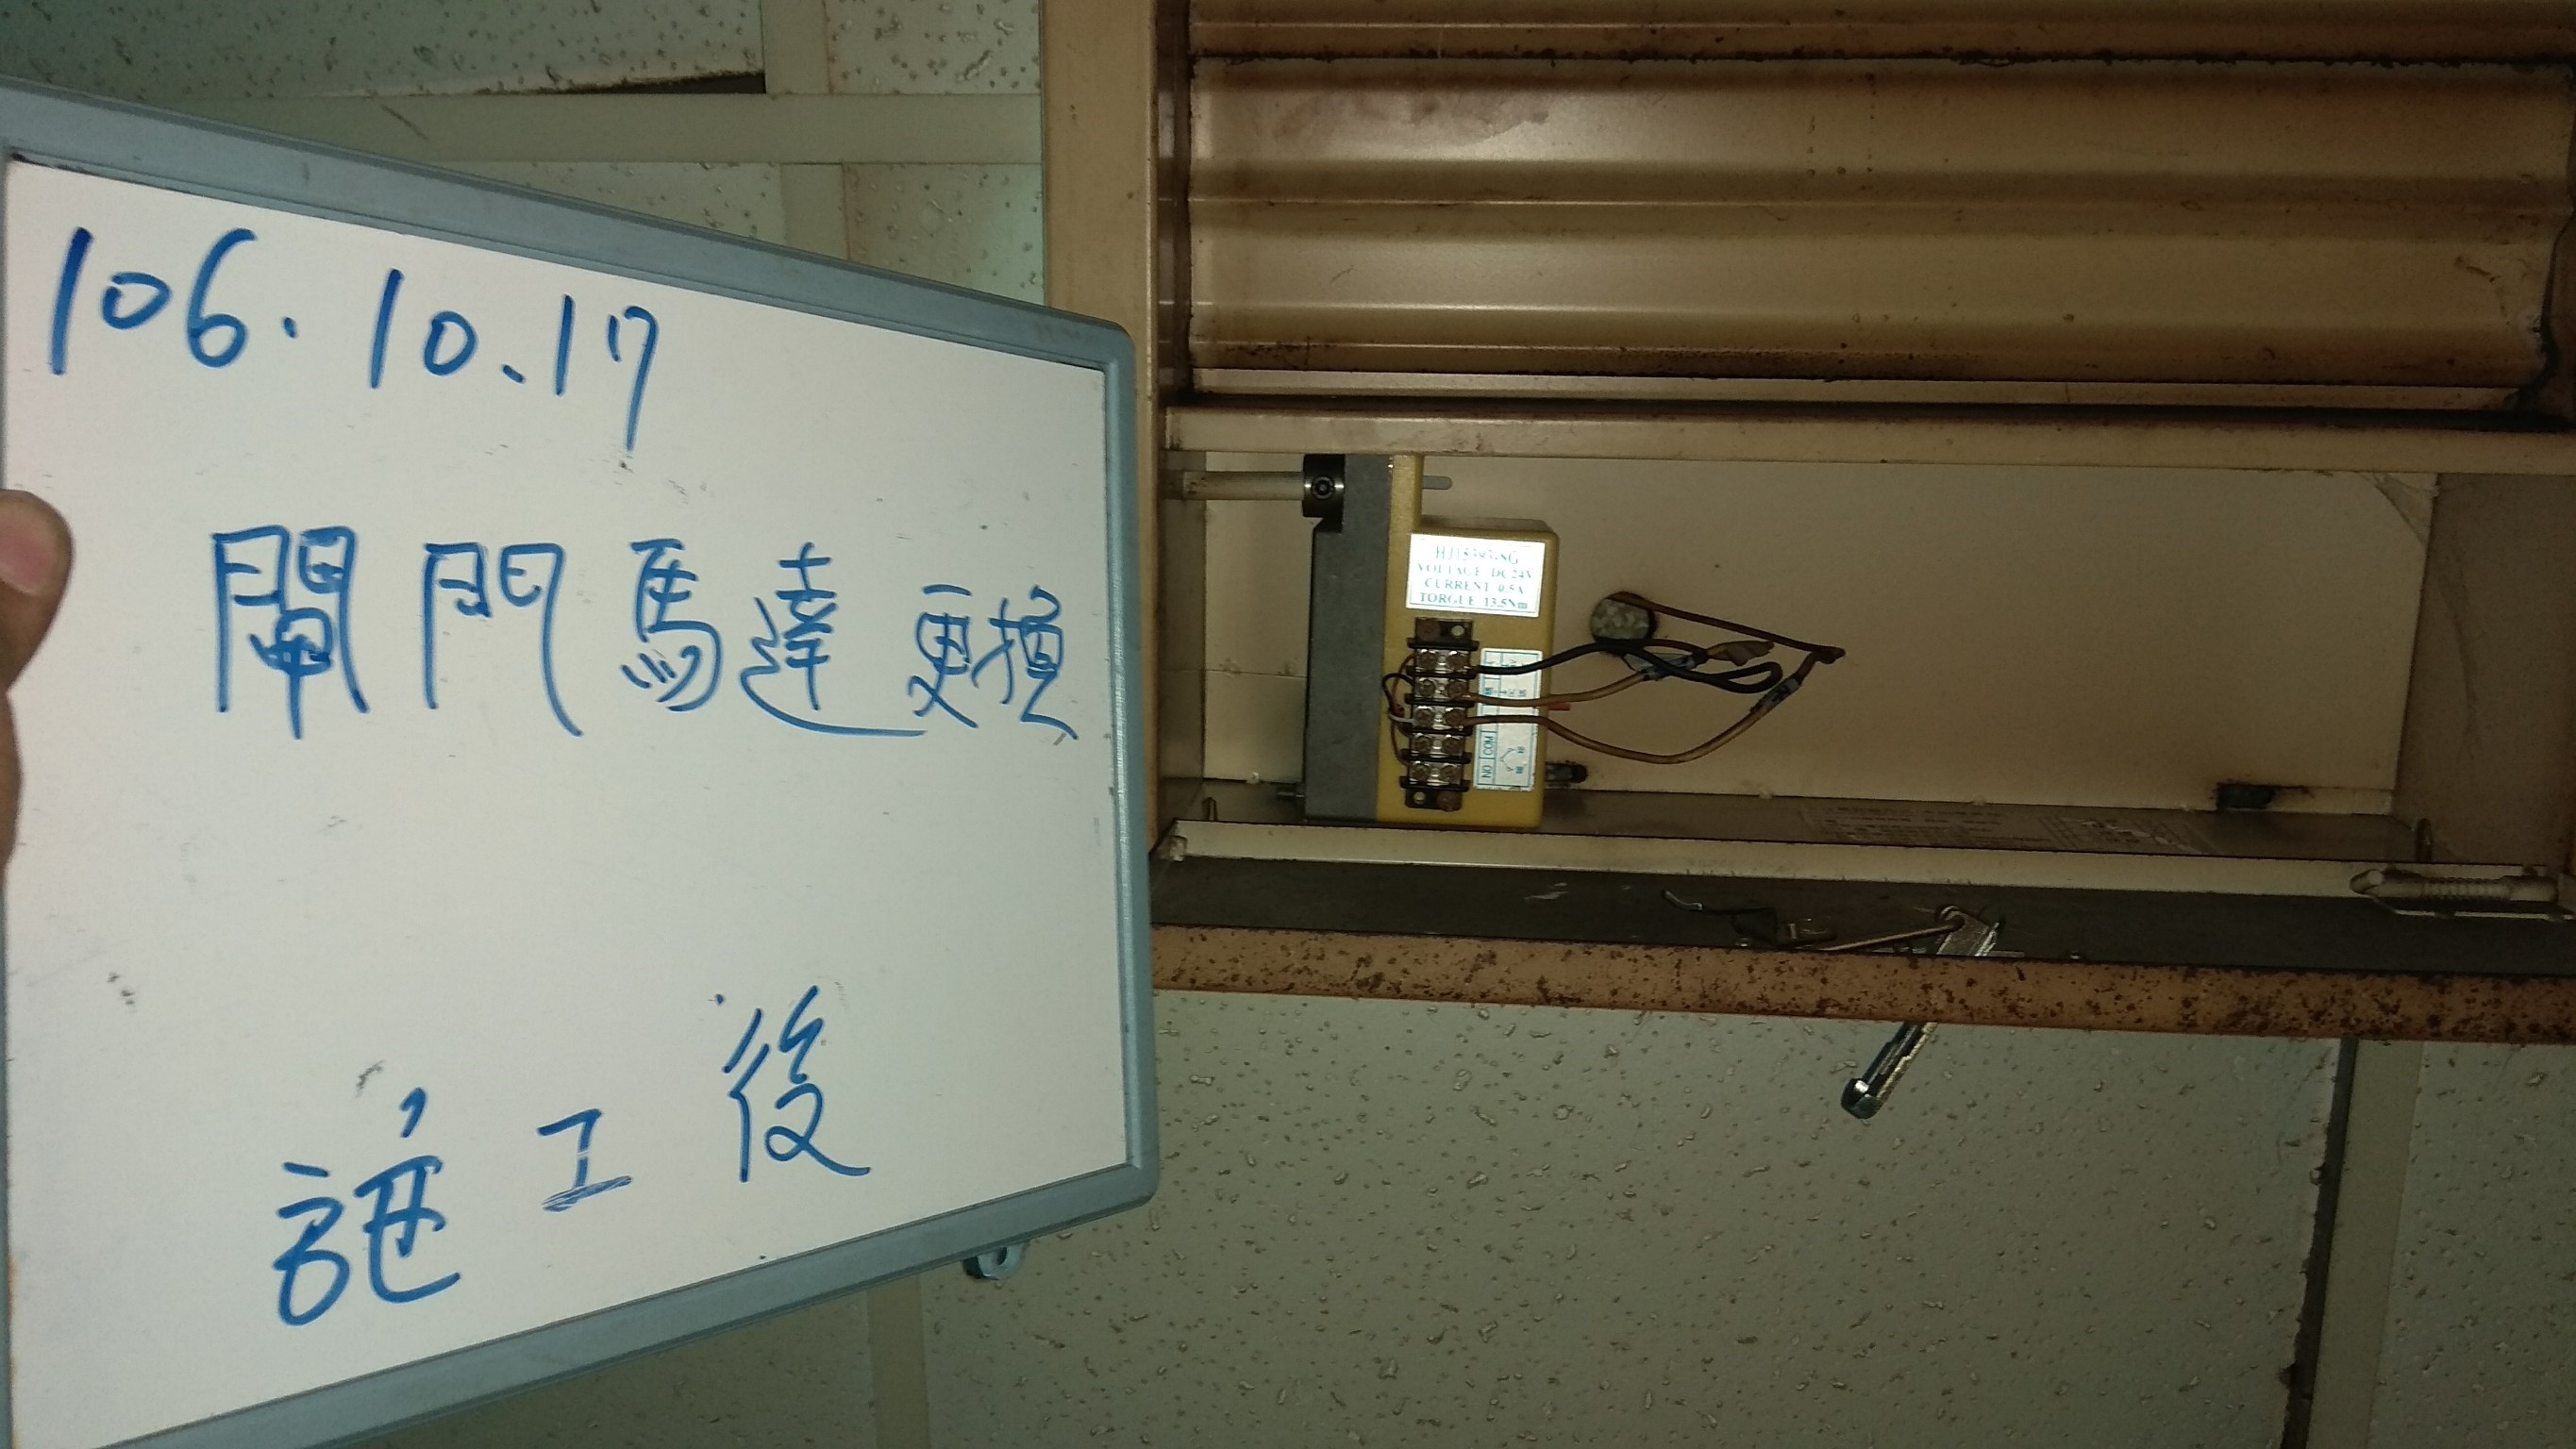 106.10.17
閘門馬達更換
施工後
VOLTAGE DC24V
CURRENT 0.5A
TORGUE 13.5Nm
NO COM